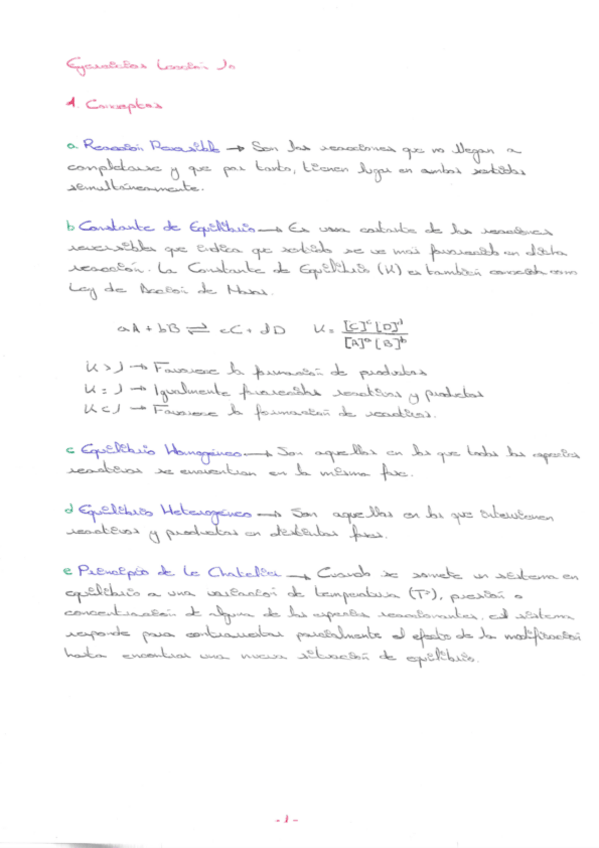 Ejercicios Lección
1 Conceptos
a. Reacción Reversible → Son las reacciones que no llegan a
completarse y que por tanto, tienen lugar en ambos sentidos
simultáneamente.
b Constante de Equilibrio → Es una constante de las reacciones
reversibles que indica que sentido se ve más favorecido en dicha
reacción. La Constante de Equilibrio (K) es también conocida como
Ley de Acción de Masas.
aA + bB ⇌ cC + dD K = [C]ᶜ[D]ᵈ / [A]ᵃ[B]ᵇ
K > 1 → Favorece la formación de productos
K = 1 → Igualmente favorecidos reactivos y productos
K < 1 → Favorece la formación de reactivos.
c Equilibrio Homogéneo → Son aquellos en los que todas las especies
reactivos se encuentran en la misma fase.
d Equilibrio Heterogéneo → Son aquellos en los que intervienen
reactivos y productos en distintas fases.
e Principio de Le Chatelier → Cuando se somete un sistema en
equilibrio a una variación de temperatura (Tª), presión o
concentración de alguna de las especies reaccionantes, el sistema
responde para contrarrestar parcialmente el efecto de la modificación
hasta encontrar una nueva situación de equilibrio.
-1-